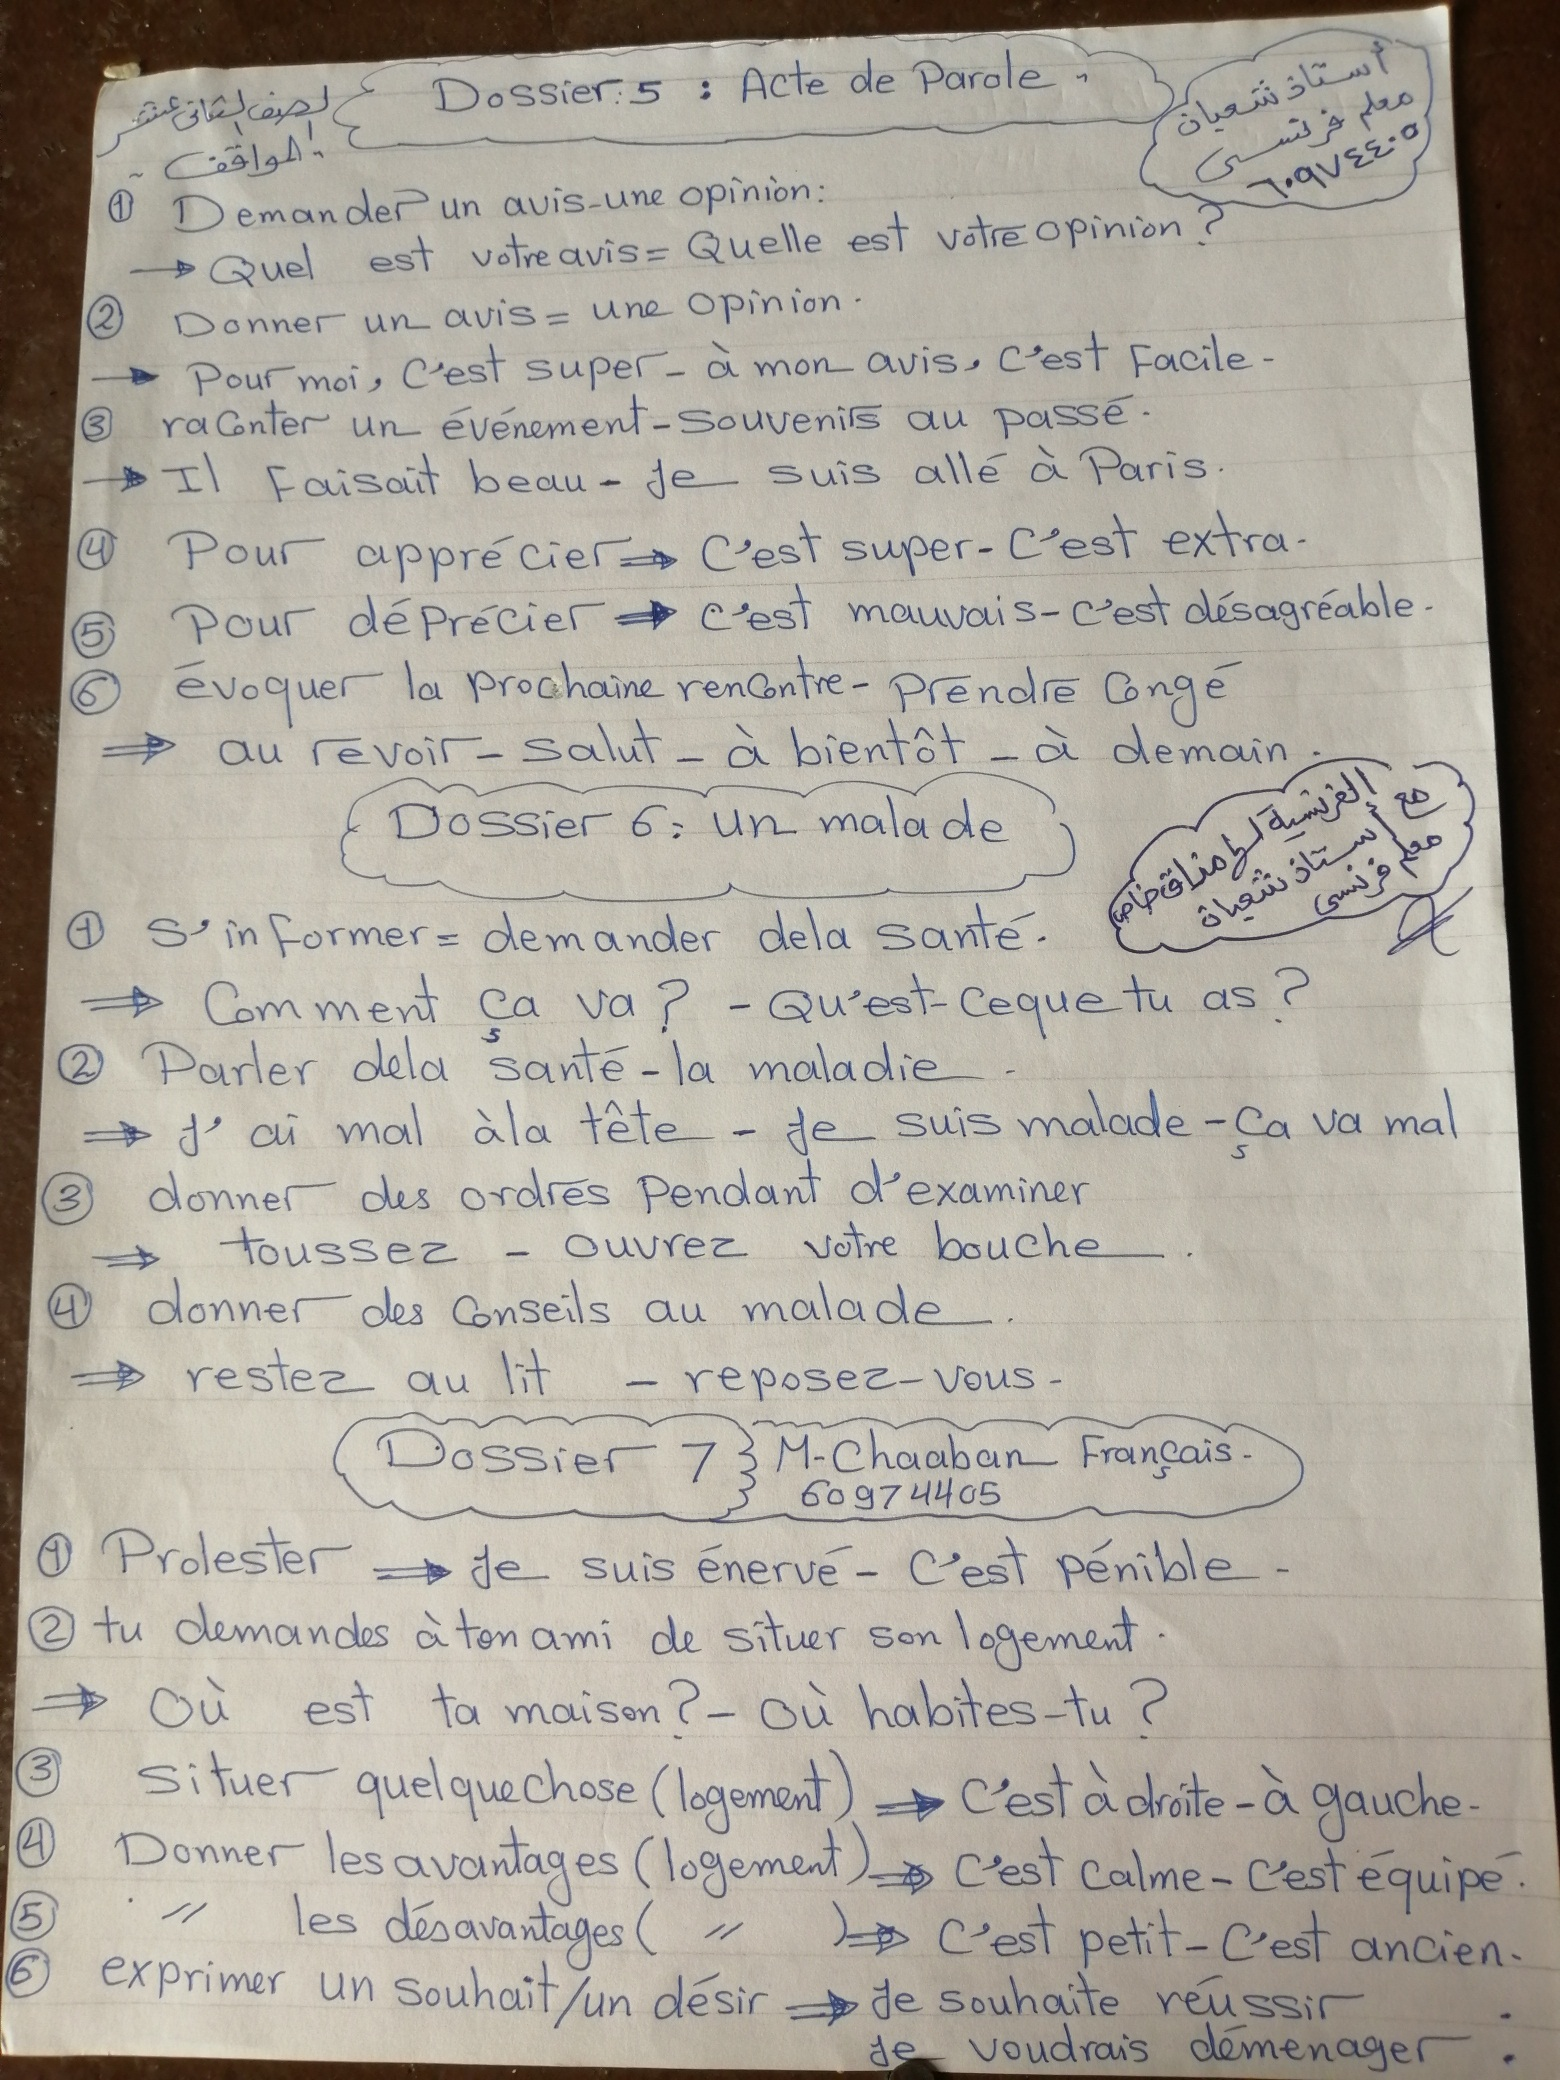 Dossier: 5 : Acte de Parole.
الصف الثاني عشر
المواقف.
أستاذ شعبان
معلم فرنسي
٦٠٩٧٤٤٠٥
① Demander un avis-une opinion:
→ Quel est votre avis = Quelle est votre opinion?
② Donner un avis = une opinion.
→ Pour moi, C'est super - à mon avis, C'est Facile -
③ raconter un événement - Souvenirs au passé.
→ Il Faisait beau - Je suis allé à Paris.
④ Pour apprécier ⇒ C'est super - C'est extra.
⑤ Pour déprécier ⇒ C'est mauvais - C'est désagréable.
⑥ évoquer la prochaine rencontre - Prendre Congé
⇒ au revoir - Salut - à bientôt - à demain.
Dossier 6: un malade
الفرنسية لها مذاق خاص
مع أستاذ شعبان
معلم فرنسي
① S'informer = demander dela santé.
⇒ Comment ça va? - Qu'est-ceque tu as?
② Parler dela santé - la maladie.
⇒ J'ai mal àla tête - Je suis malade - Ça va mal
③ donner des ordres Pendant d'examiner
⇒ toussez - ouvrez votre bouche.
④ donner des Conseils au malade.
⇒ restez au lit - reposez-vous -
Dossier 7 } M-Chaaban Français.
60974405
① Prolester ⇒ Je suis énervé - C'est pénible -
② tu demandes à ton ami de situer son logement.
⇒ Où est ta maison? - Où habites-tu?
③ Situer quelquechose (logement) ⇒ C'est à droite - à gauche.
④ Donner les avantages (logement) ⇒ C'est Calme - C'est équipé.
⑤ " les désavantages ( " ) ⇒ C'est petit - C'est ancien.
⑥ exprimer un souhait/un désir ⇒ Je souhaite réussir.
Je voudrais démenager.